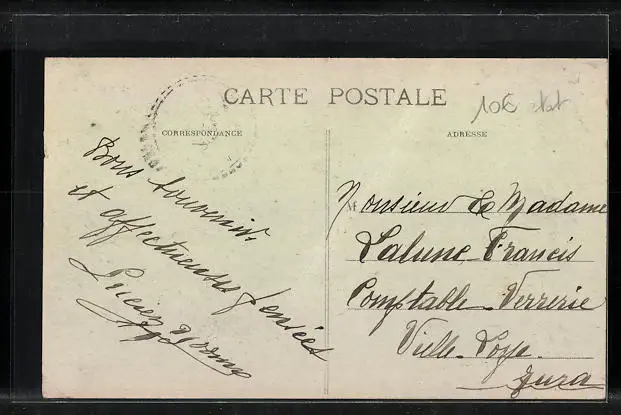 CARTE POSTALE
10€ état
CORRESPONDANCE
ADRESSE
Bons souvenirs
et affectueuses pensées
Monsieur & Madame
Lalune Francis
Comptable Verrerie
Vieille-Loye
Jura